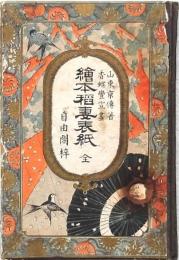 山東京傳著
香蝶豊宣畫
繪本稻妻表紙 全
自由閣梓